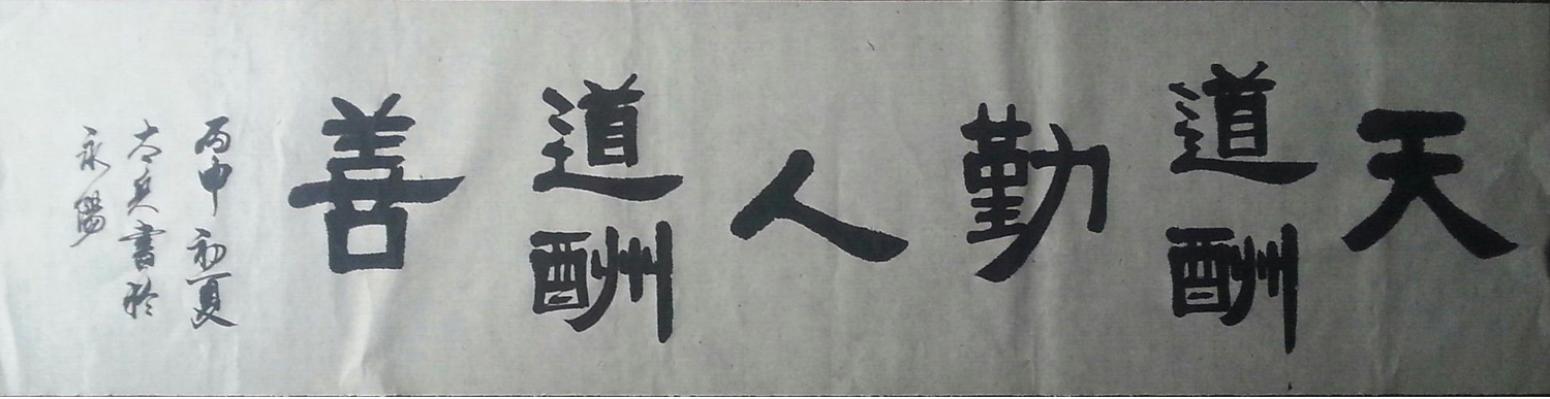 天道酬勤人道酬善
丙申初夏
大兵書於
永陽